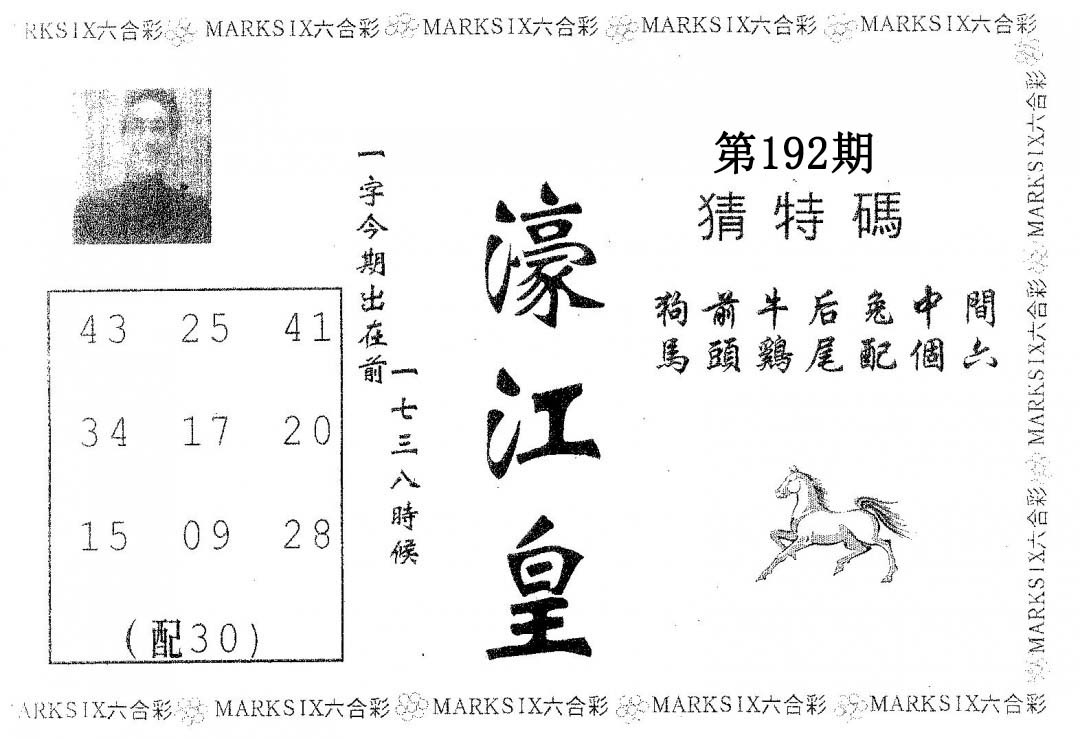 RKSIX六合彩 MARKSIX六合彩 MARKSIX六合彩 MARKSIX六合彩 MARKSIX六合彩
MARKSIX六合彩 MARKSIX六合彩 MARKSIX六合彩
第192期
猜特碼
狗前牛后兔中間
馬頭鷄尾配個六
濠江皇
一字今期出在前
一七三八時候
43 25 41
34 17 20
15 09 28
(配30)
ARKSIX六合彩 MARKSIX六合彩 MARKSIX六合彩 MARKSIX六合彩 MARKSIX六合彩